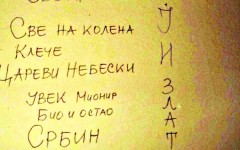 Све на колена
Клече
Цареви Небески
Увек Мионир
Био и остао
Србин
У
И
З
Л
А
Т